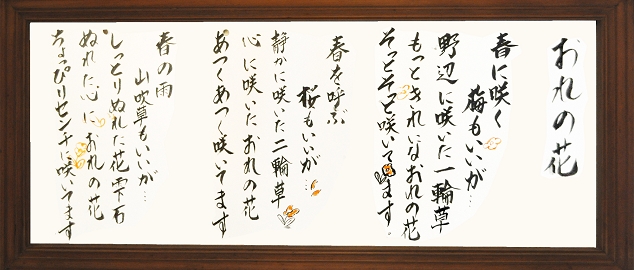 おれの花
春に咲く
梅もいいが…
野辺に咲いた一輪草
もっときれいなおれの花
そっとそっと咲いてます。
春を呼ぶ
桜もいいが…
静かに咲いた二輪草
心に咲いたおれの花
あつくあつく咲いてます
春の雨
山吹草もいいが…
しっとりぬれた花雫石
ぬれた心におれの花
ちょっぴりセンチに咲いてます